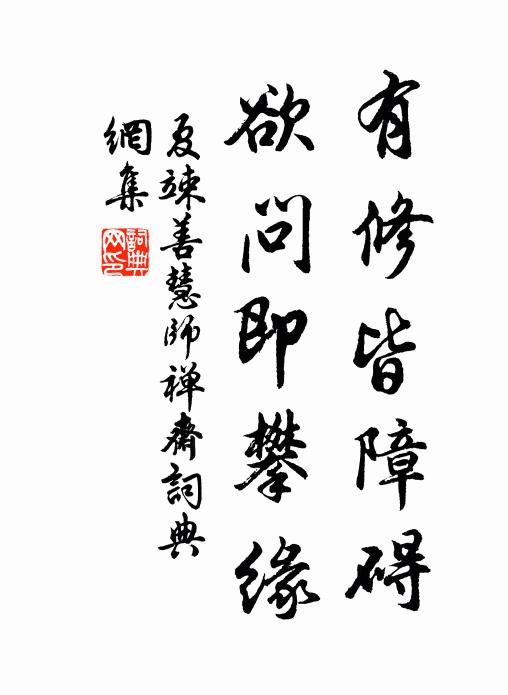 有修皆障碍
欲问即攀缘
夏竦善慧师禅斋词典
網集
詞典網印